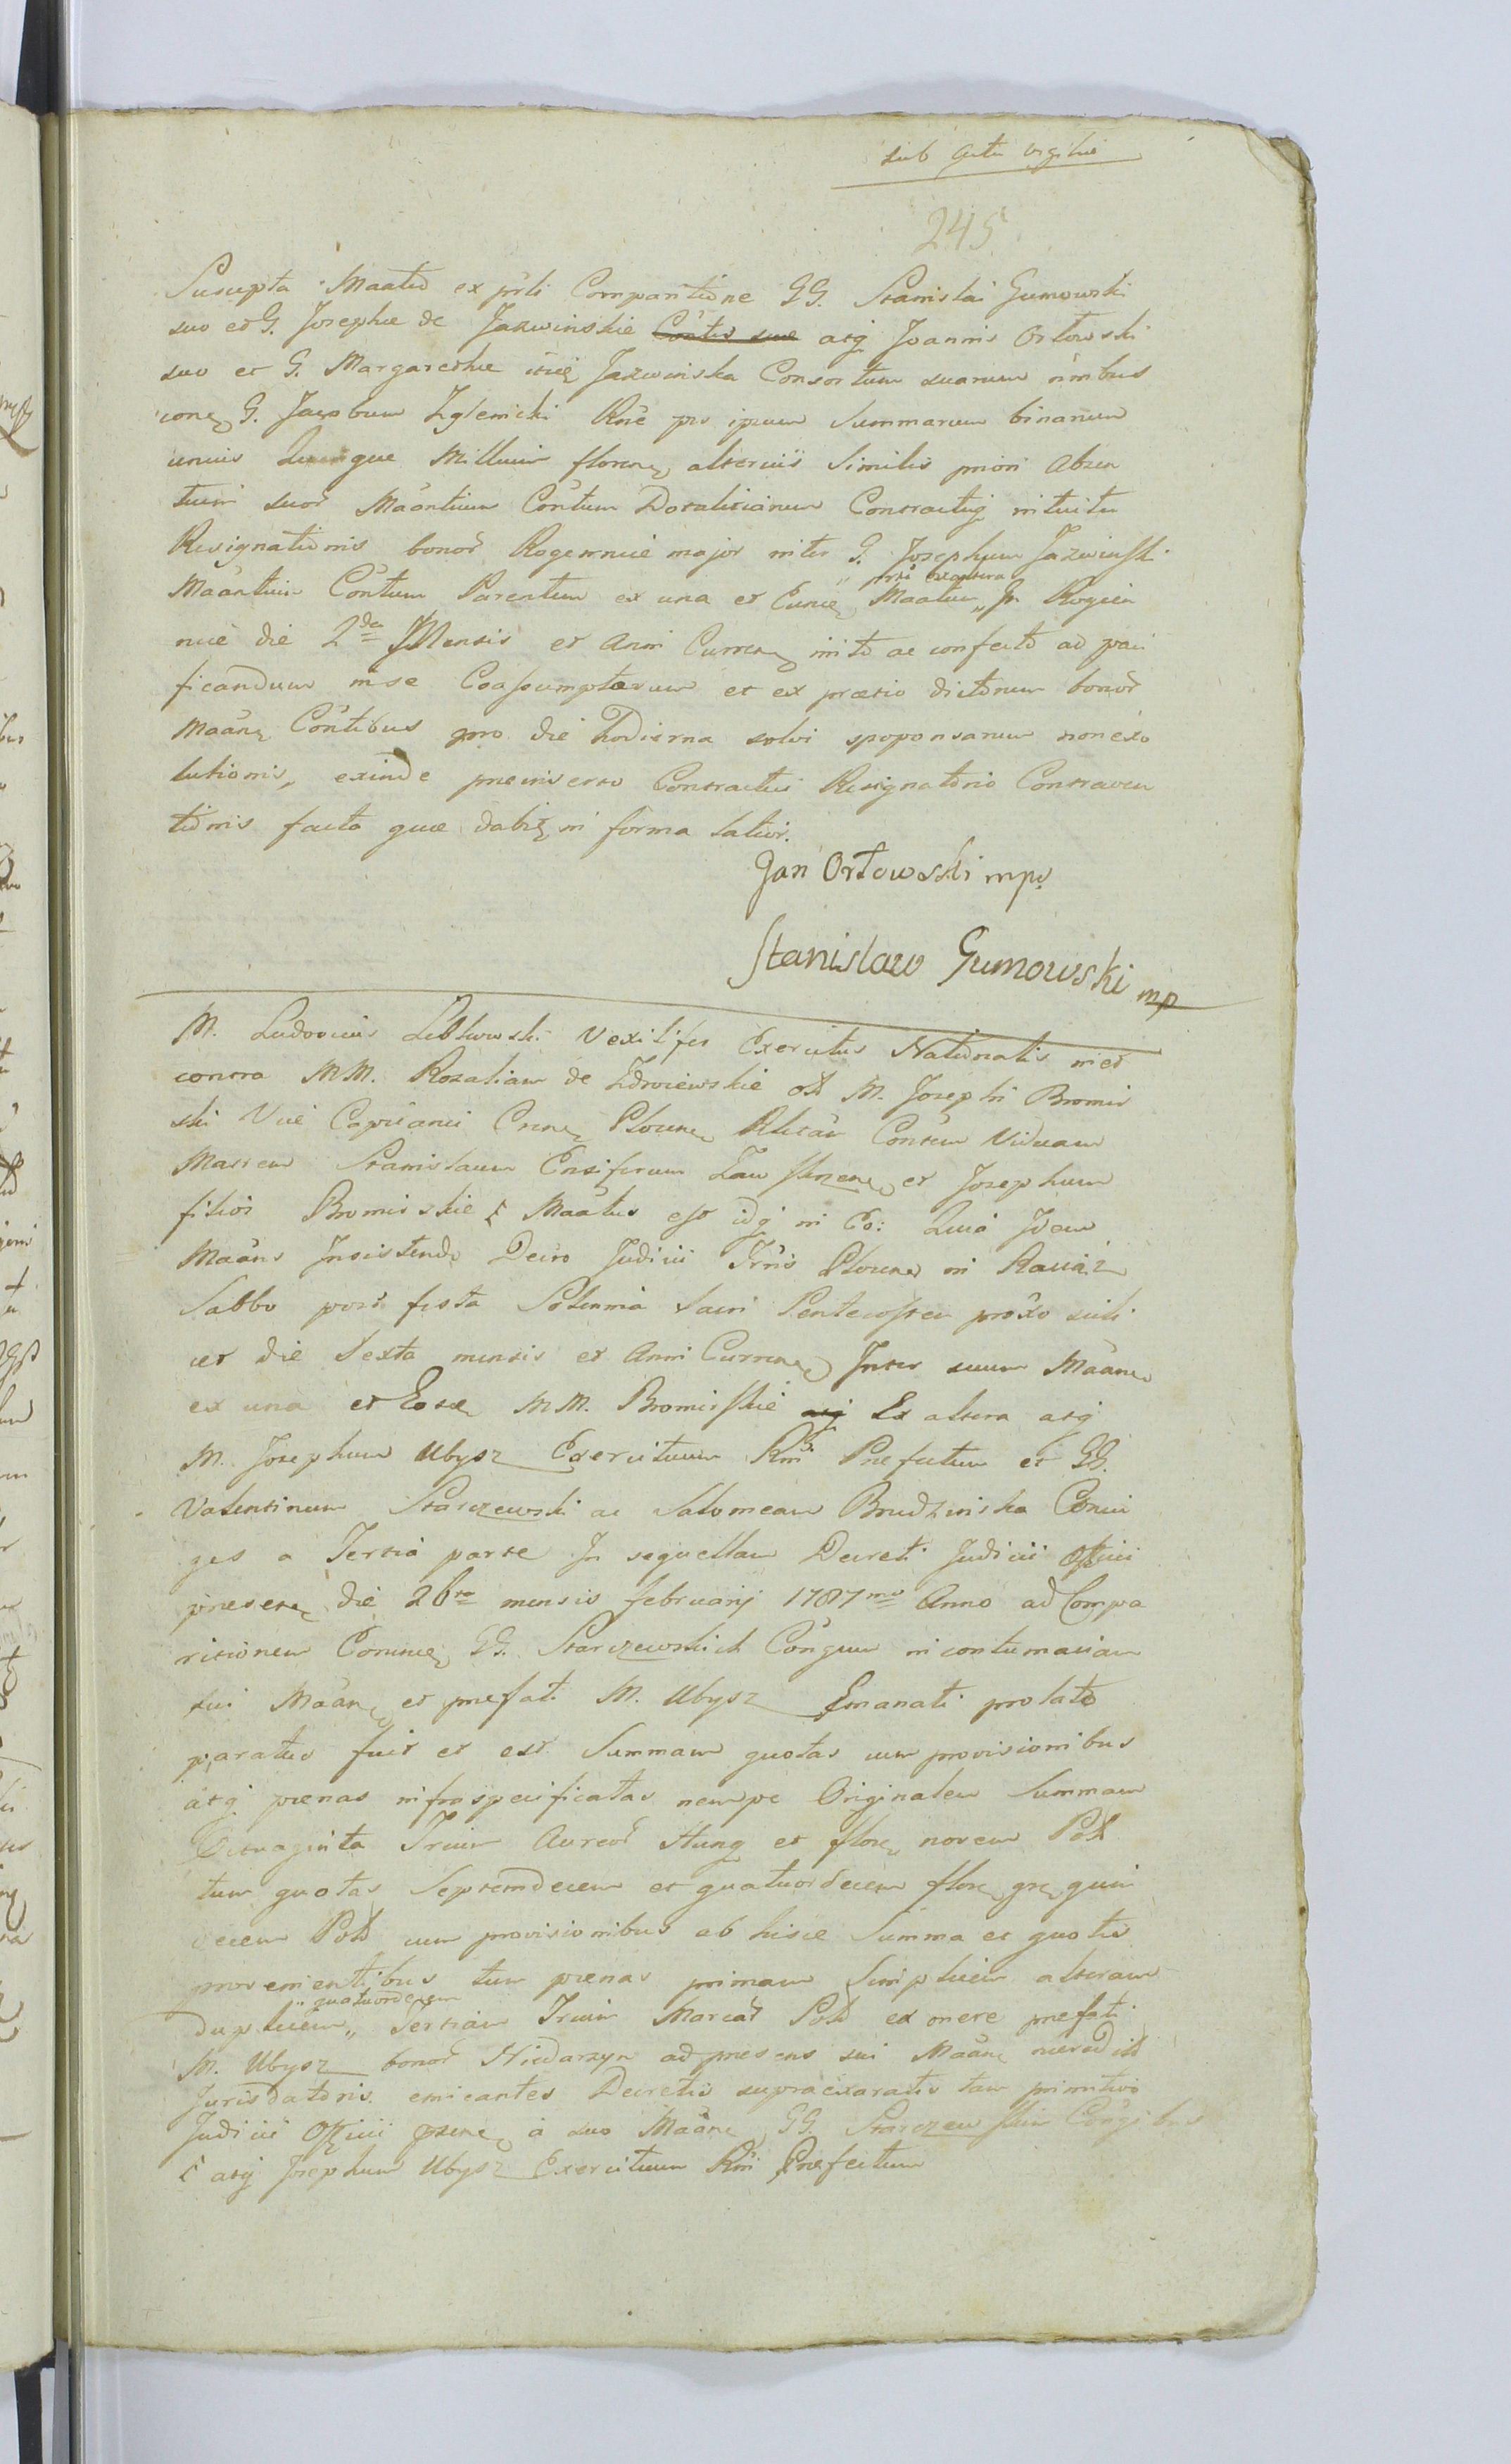 sub actu vigiliæ
245
Suscepta Maatio ex prli Comparitione GG. Stanislai Gumowski
suo et G. Josephæ de Jazwinskie Cõrtis suæ atq Joannis Orłowski
suo et G. Margarethæ itid Jazwinska Consortum suarum nnibus
cone G. Jacobum Zglenicki Rne pro ipsum Summarum binarum
unius Quinque Millium floren, alterius Similis priori
suor Maantium Con̈tum Dotalitiarum Contractuq intuitu
Resignationis bonor major inter G. Josephum Jazwinski
Maantium Con̈tum Parentum ex una et Eunde Maatum „prte exaltera„ in Rogien
nice die 2da Mensis et Anni Curren inito ac confecto ad paci
ficandum in se Coassumptarum et ex prætio dictorum bonor
Maan Con̈tibus pro die Hodierna solvi spoponsarum non exo
lutionis, exinde præinserto Contractui Resignatorio Contraven
tionis facto quæ dabit in forma latior.
Jan Orłowski mpr
Stanisław Gumowski mp
M. Ludovicus Vexilifer Exercitus Nationalis
contra MM. Rozaliam de Zdroiewskie M. Josephi Bromir
ski Vice Capitanei Plocen Consor Viduam
Matrem Stanislaum Ensiferum Zaw Skrzen et Josephum
filios Bromirskie Maatus est idq in Eo: Quia Idem
Maans Insistendo Decro Judicii Trris Plocen in Raciąz
Sabbo post festa Solennia Sacri Pentecosten proxo scili
cet die Sexta mensis et Anni Curren Inter suum Maan
ex una et Eosd MM. Bromirskie atq Ex altera atq
M. Josephum Ubysz Exercituum Præfectum et GG.
Valentinum Starczewski ac Salomeam Brudzinska Coniu
ges a Tertia parte In sequellam Decreti Judicii Officii
præsen die 26ta mensis februarij 1787mo Anno ad Compa
ritionem GG. Starczewskich Con̈gum in contumaciam
sui Maan et præfati M. Ubysz Emanati prolato
paratus fuit et est Summam quotas cum provisionibus
atq pœnas infraspecificatas nempe Originalem Summam
Octuaginta Trium Aureor Hung et flor novem Pol
tum quotas Septemdecem et quatuordecem flor gr quin
decem Pol cum provisionibus ab hisce Summa et quotis
provenientibus tum pœnas primam Simplicem alteram
duplicem „quatuordecem„ Tertiam Trium Marcar Pol ex onere præfati
M. Ubysz bonor Niedarzyn ad præsens sui Maan
Jurisdatoris emicantes Decretis supraexaratis tam primitivo
Judicii Officii præsen a suo Maan GG. Starczewskim Con̈gibus
atq Josephum Ubysz Exercituum Præfectum